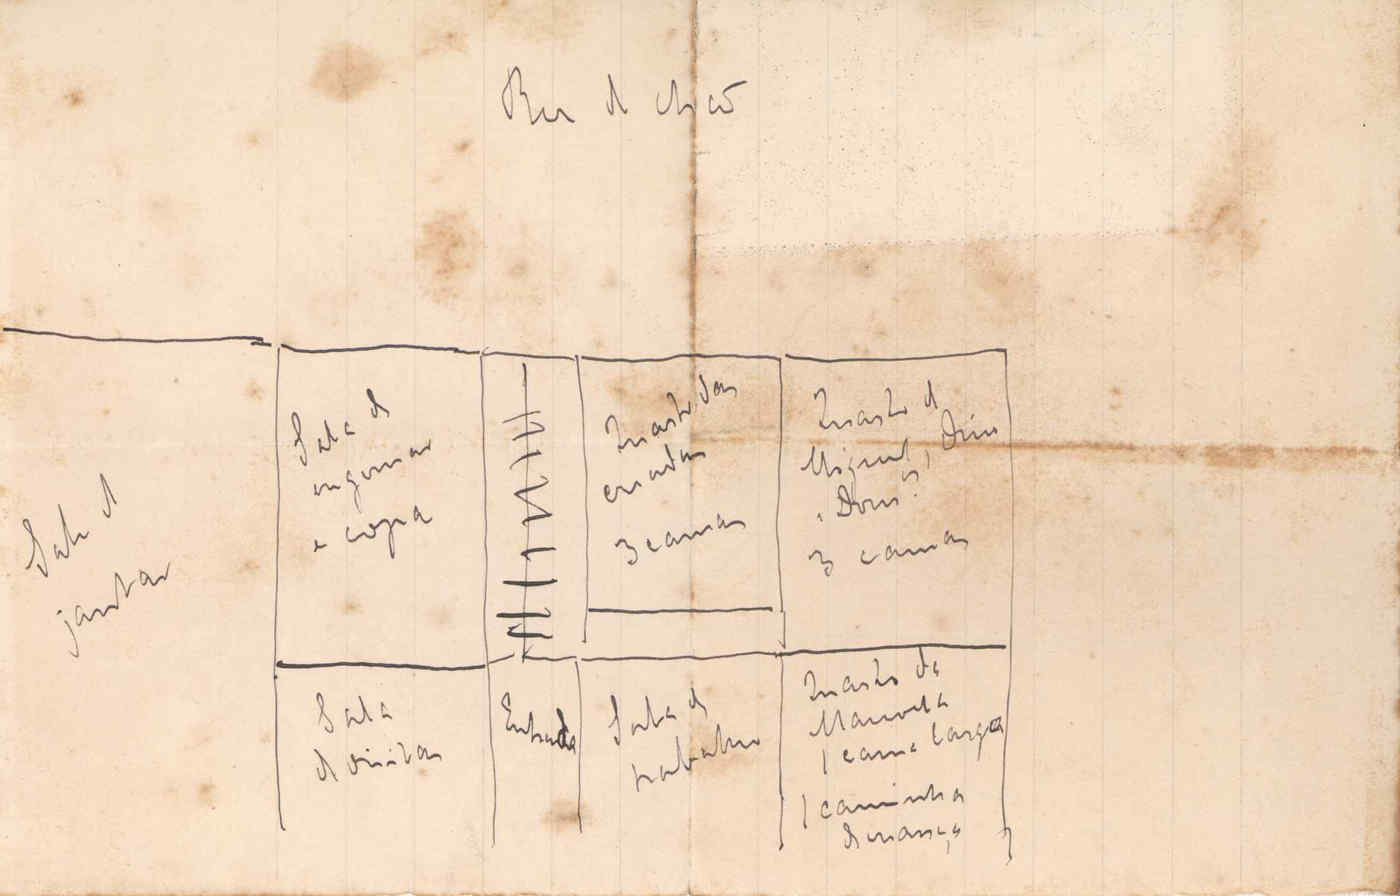 Res do chão
Sala de
jantar
Sala de
engomar
e copa
Quarto das
criadas
3 camas
Quarto de
Miguel,
3 camas
Sala
de visitas
Entrada
Sala de
trabalho
Quarto da
Manoela
1 cama larga
1 caminha
de criança